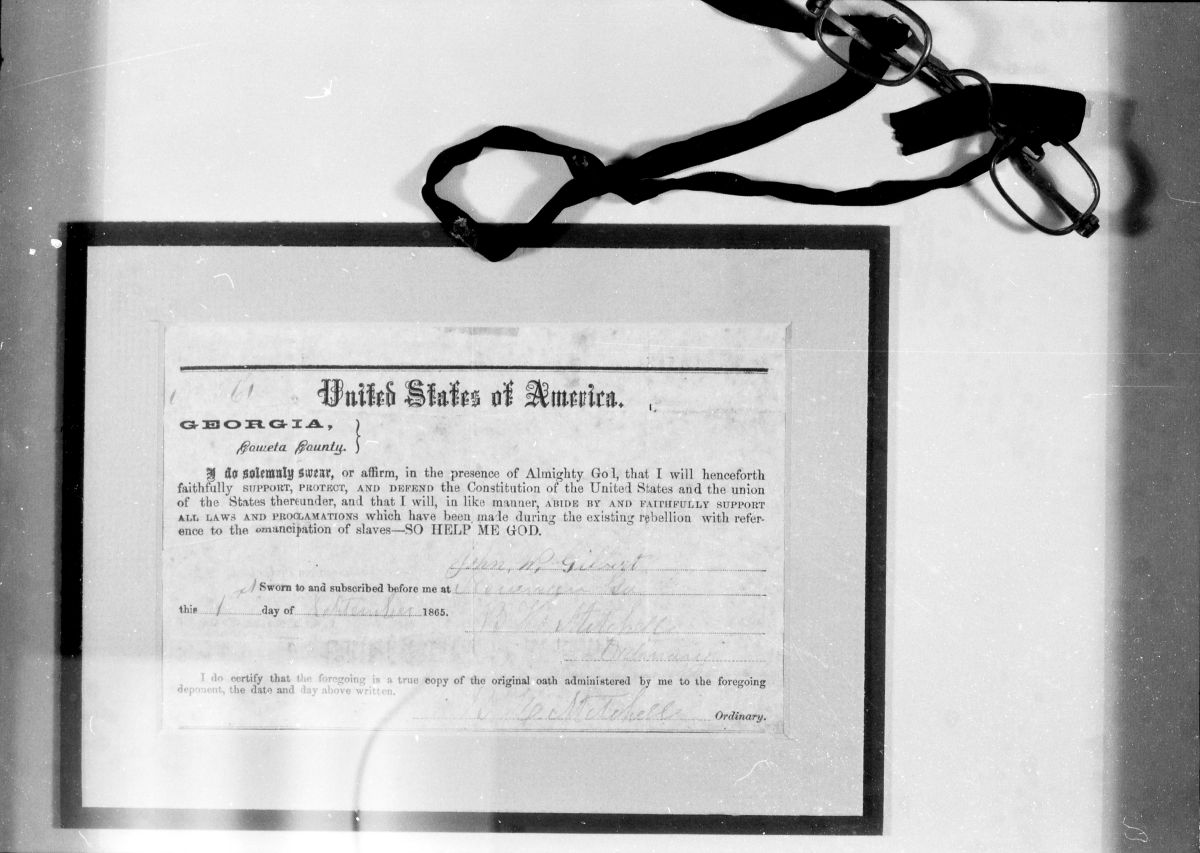 United States of America.
GEORGIA,
Coweta County.
I do solemnly swear, or affirm, in the presence of Almighty God, that I will henceforth
faithfully SUPPORT, PROTECT, AND DEFEND the Constitution of the United States and the union
of the States thereunder, and that I will, in like manner, ABIDE BY AND FAITHFULLY SUPPORT
ALL LAWS AND PROCLAMATIONS which have been made during the existing rebellion with refer-
ence to the emancipation of slaves—SO HELP ME GOD.
John W.
Sworn to and subscribed before me at Newnan Ga
this 1st day of September 1865.
B. H. Mitchell
Ordinary
I do certify that the foregoing is a true copy of the original oath administered by me to the foregoing
deponent, the date and day above written.
B. H. Mitchell Ordinary.